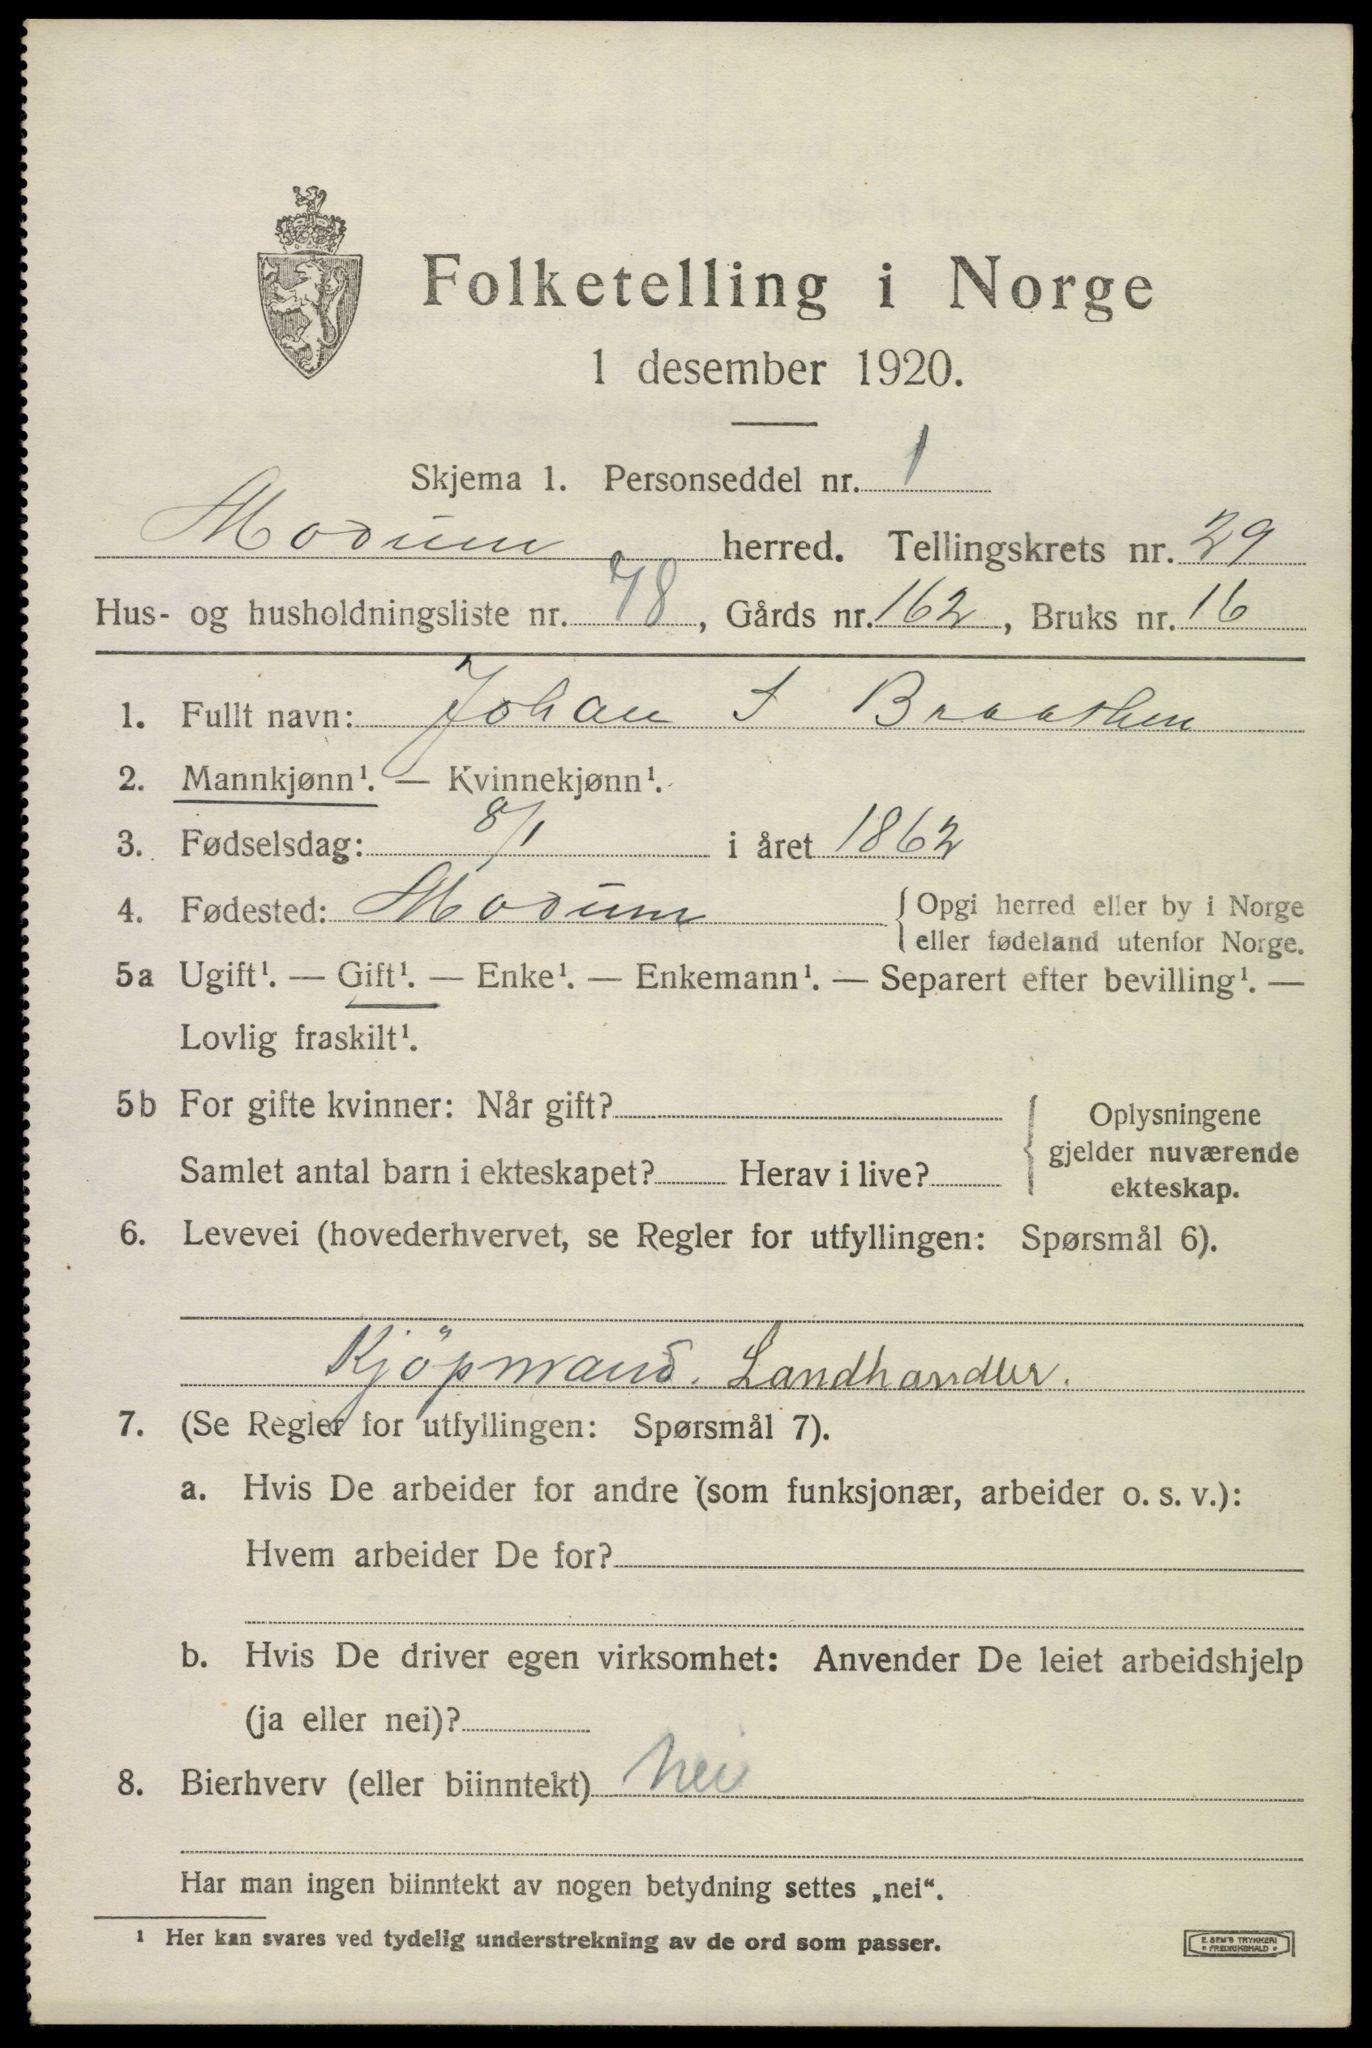 Folketelling i Norge
1 desember 1920.
Skjema 1. Personseddel nr. 1
Modum herred. Tellingskrets nr. 29
Hus- og husholdningsliste nr. 78, Gårds nr. 162, Bruks nr. 16
1. Fullt navn: Johan Braathen
2. Mannkjønn¹. — Kvinnekjønn¹.
3. Fødselsdag: 8/1 i året 1862
4. Fødested: Modum { Opgi herred eller by i Norge
eller fødeland utenfor Norge.
5a Ugift¹. — Gift¹. — Enke¹. — Enkemann¹. — Separert efter bevilling¹. —
Lovlig fraskilt¹.
5b For gifte kvinner: Når gift? { Oplysningene
gjelder nuværende
Samlet antal barn i ekteskapet? Herav i live?
ekteskap.
6. Levevei (hovederhvervet, se Regler for utfyllingen: Spørsmål 6).
Kjöpmand. Landhandler.
7. (Se Regler for utfyllingen: Spørsmål 7).
a. Hvis De arbeider for andre (som funksjonær, arbeider o. s. v.):
Hvem arbeider De for?
b. Hvis De driver egen virksomhet: Anvender De leiet arbeidshjelp
(ja eller nei)?
8. Bierhverv (eller biinntekt) Nei
Har man ingen biinntekt av nogen betydning settes „nei“.
¹ Her kan svares ved tydelig understrekning av de ord som passer.
E. SEM'S TRYKKERI
* FREDRIKSHALD *